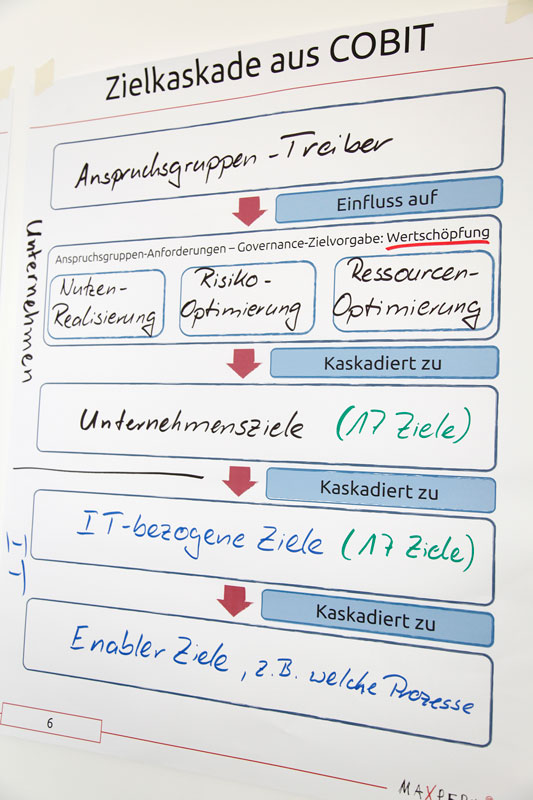 Zielkaskade aus COBIT
Anspruchsgruppen-Treiber
Einfluss auf
Unternehmen
Anspruchsgruppen-Anforderungen – Governance-Zielvorgabe: Wertschöpfung
Nutzen-
Realisierung
Risiko-
Optimierung
Ressourcen-
Optimierung
Kaskadiert zu
Unternehmensziele (17 Ziele)
Kaskadiert zu
IT-bezogene Ziele (17 Ziele)
IT
Kaskadiert zu
Enabler Ziele, z.B. welche Prozesse
6